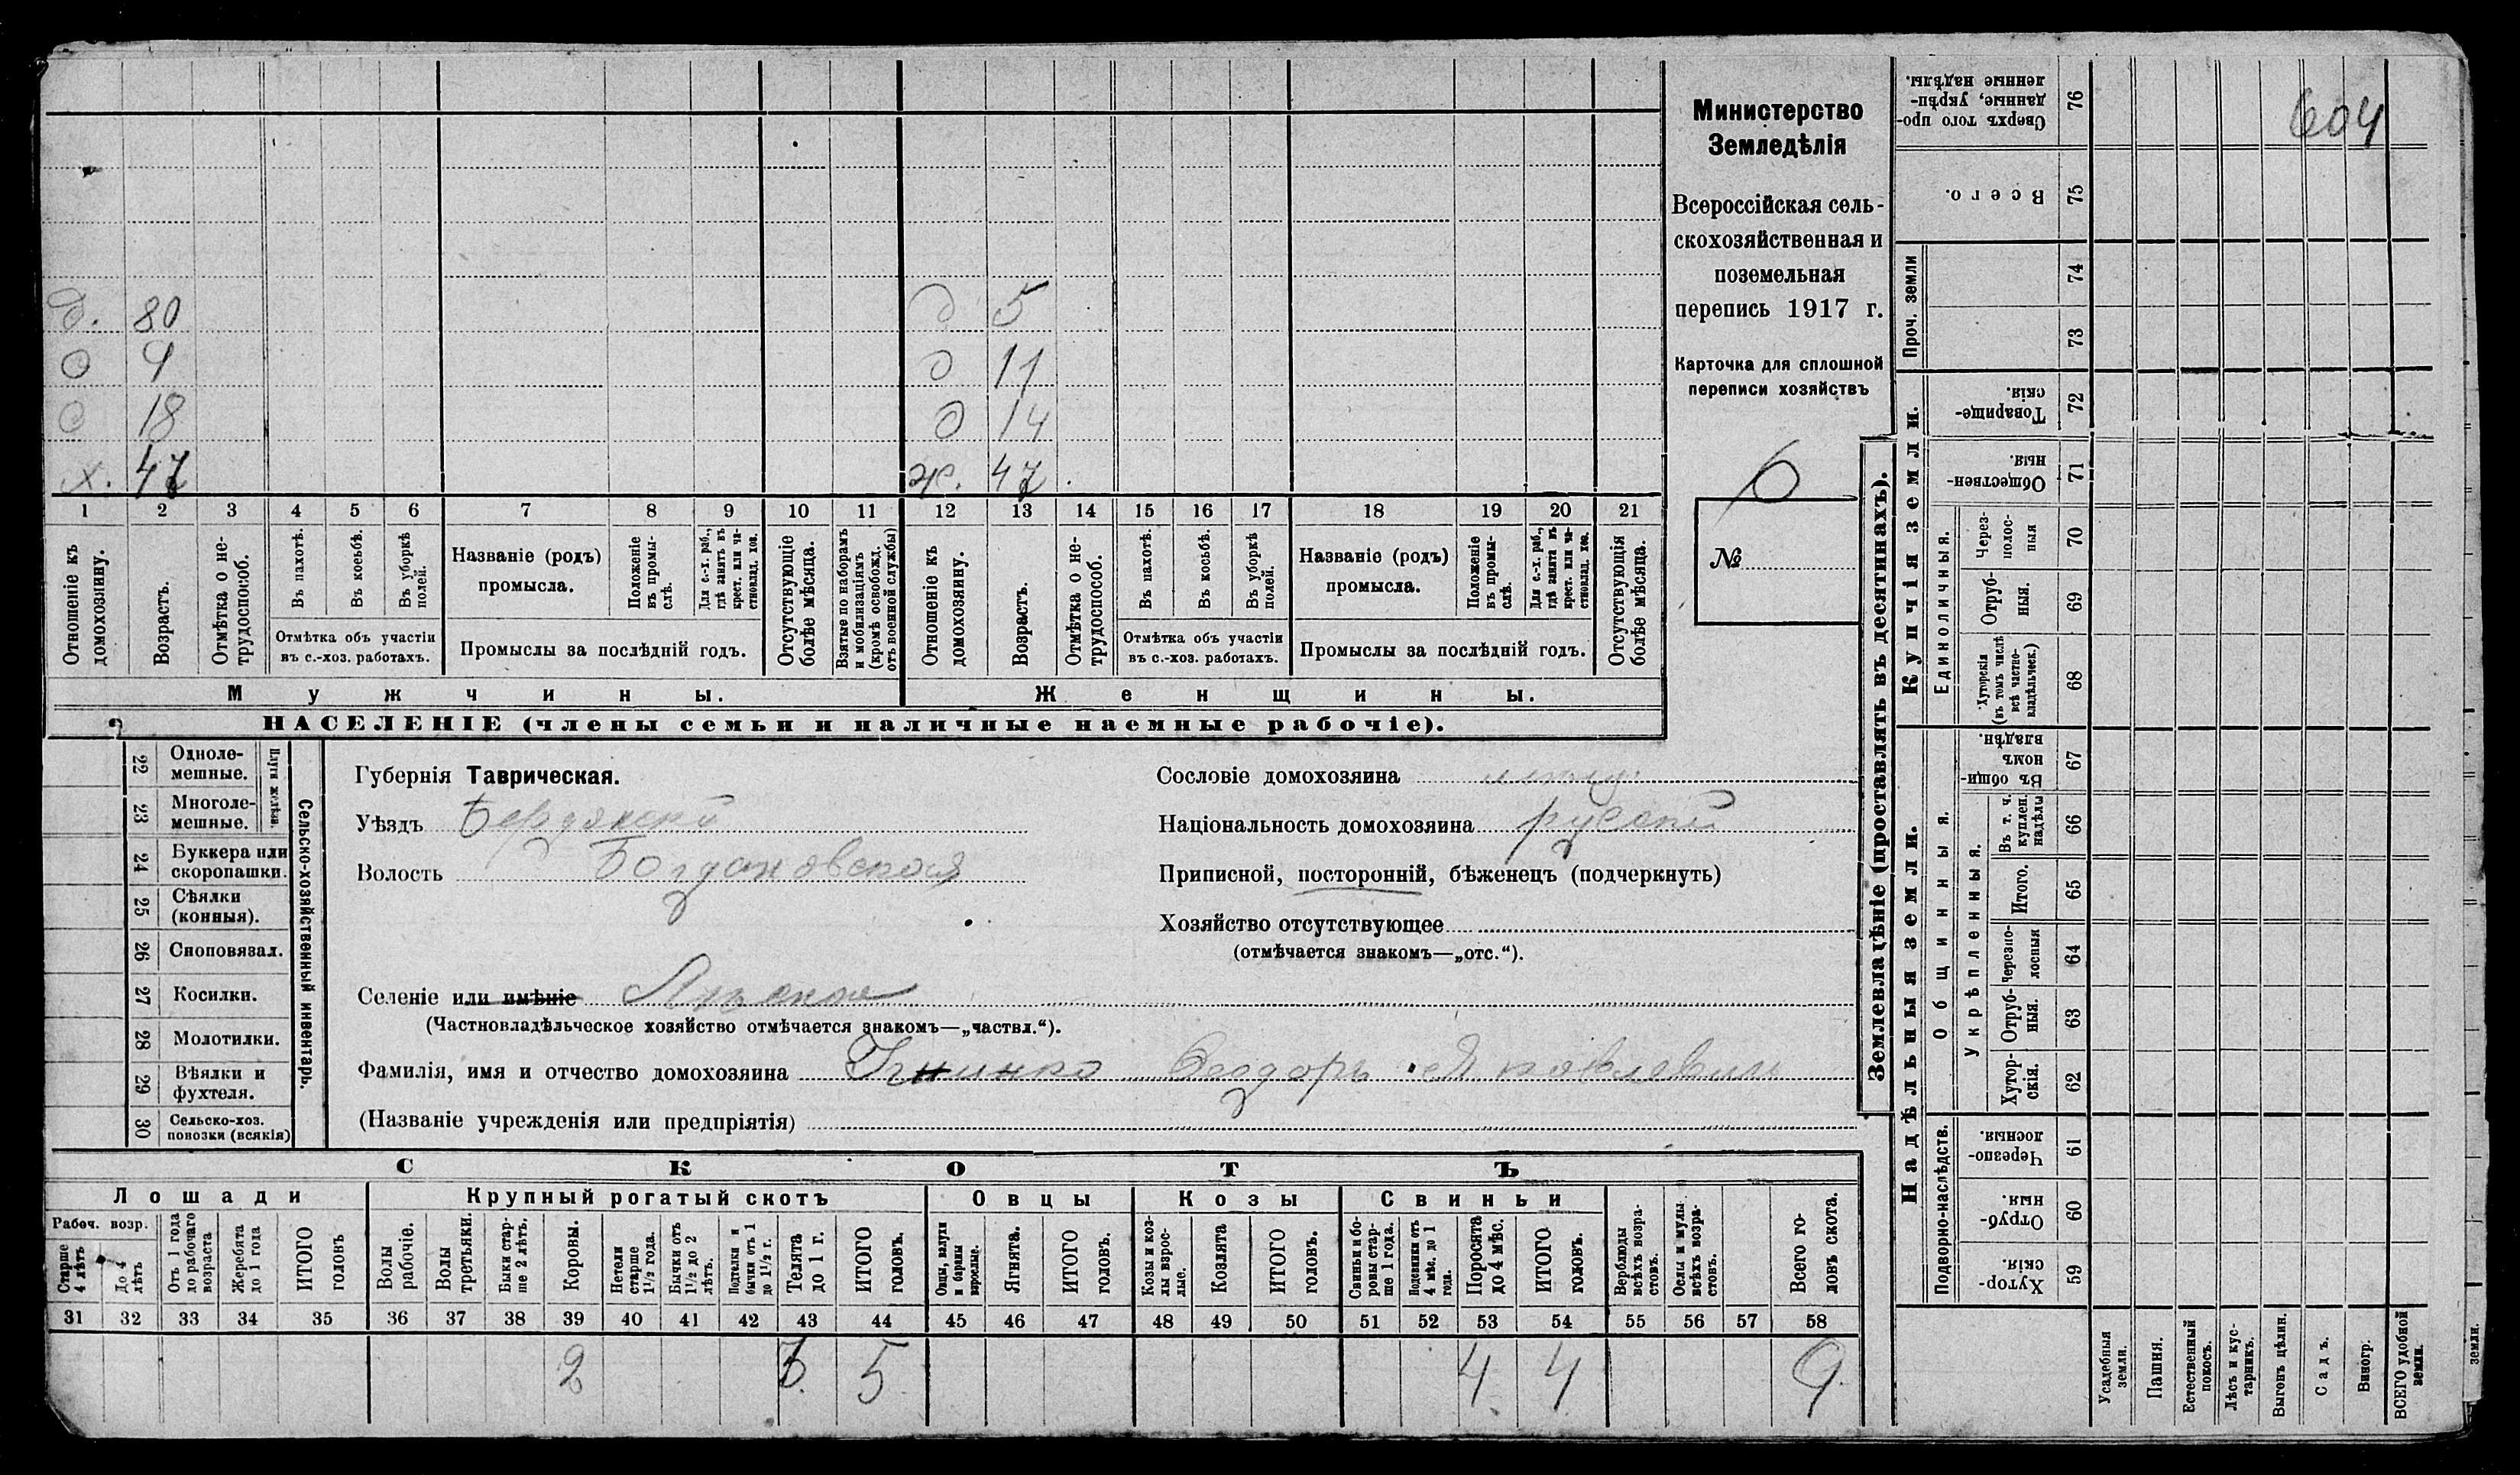 604
Министерство
Земледѣлія
Всероссійская сель-
скохозяйственная и
поземельная
перепись 1917 г.
Карточка для сплошной
переписи хозяйствъ
6
№
д. 80 д 5
д 9 д 11
д 18 д 14
х. 47 ж. 47
1 2 3 4 5 6 7 8 9 10 11 12 13 14 15 16 17 18 19 20 21
Отношеніе къ домохозяину.
Возрастъ.
Отмѣтка о не-трудоспособ.
Въ пахотѣ.
Въ косьбѣ.
Въ уборкѣ полей.
Отмѣтка объ участіи
въ с.-хоз. работахъ.
Названіе (родъ)
промысла.
Положеніе въ промы-слѣ.
Для с.-х. раб., гдѣ занятъ въ крест. или ча-стновлад. хоз.
Промыслы за послѣдній годъ.
Отсутствующіе болѣе мѣсяца.
Взятые по наборамъ и мобилизаціямъ (кромѣ освобожд. отъ военной службы)
Отношеніе къ домохозяину.
Возрастъ.
Отмѣтка о не-трудоспособ.
Въ пахотѣ.
Въ косьбѣ.
Въ уборкѣ полей.
Отмѣтка объ участіи
въ с.-хоз. работахъ.
Названіе (родъ)
промысла.
Положеніе въ промы-слѣ.
Для с.-х. раб., гдѣ занята въ крест. или ча-стновлад. хоз.
Промыслы за послѣдній годъ.
Отсутствующія болѣе мѣсяца.
Мужчины. Женщины.
НАСЕЛЕНІЕ (члены семьи и наличные наемные рабочіе).
22 Однолемешные.
23 Многолемешные.
Плуги желѣзн.
24 Буккера или скоропашки.
25 Сѣялки (конныя).
26 Сноповязал.
27 Косилки.
28 Молотилки.
29 Вѣялки и фухтеля.
30 Сельско-хоз. повозки (всякія)
Сельско-хозяйственный инвентарь.
Губернія Таврическая.
Уѣздъ Бердянскій
Волость Богдановская
Селеніе или имѣніе
(Частновладѣльческое хозяйство отмѣчается знакомъ—„частвл.“).
Фамилія, имя и отчество домохозяина Феодоръ Яковлевич
(Названіе учрежденія или предпріятія)
Сословіе домохозяина
Національность домохозяина русскій
Приписной, посторонній, бѣженецъ (подчеркнуть)
Хозяйство отсутствующее
(отмѣчается знакомъ—„отс.“).
СКОТЪ
Лошади Крупный рогатый скотъ Овцы Козы Свиньи
Рабоч. возр.
Старше 4 лѣтъ
До 4 лѣтъ
Отъ 1 года до рабочаго возраста
Жеребята до 1 года
ИТОГО головъ
Волы рабочіе.
Волы третьяки.
Быки стар-ше 2 лѣтъ.
Коровы.
Нетели старше 1½ года.
Бычки отъ 1½ до 2 лѣтъ.
Подтелки и бычки отъ 1 до 1½ г.
Телята до 1 г.
ИТОГО головъ.
Овцы, валухи и бараны взрослые.
Ягнята.
ИТОГО головъ.
Козы и коз-лы взрос-лые.
Козлята
ИТОГО головъ.
Свиньи и бо-ровы стар-ше 1 года.
Подсвинки отъ 4 мѣс. до 1 года.
Поросята до 4 мѣс.
ИТОГО головъ.
Верблюды всѣхъ возра-стовъ.
Ослы и мулы всѣхъ возра-стовъ.
Всего го-ловъ скота.
31 32 33 34 35 36 37 38 39 40 41 42 43 44 45 46 47 48 49 50 51 52 53 54 55 56 57 58
2 3 5 4 4 9
Землевладѣніе (проставлять въ десятинахъ).
Купчія земли.
Надѣльныя земли.
Сверхъ того про-данные, укрѣп-ленные надѣлы. 76
Всего. 75
Проч. земли
74
73
Товарище-скія. 72
Обществен-ныя. 71
Единоличныя.
Через-полос-ныя 70
Отруб-ныя. 69
Хуторскія (въ томъ числѣ всѣ частно-владѣльческ.) 68
Общинныя.
Въ общин-номъ владѣн. 67
Укрѣпленныя.
Въ т. ч. куплен. надѣлы 66
Итого. 65
Черезпо-лосныя 64
Отруб-ныя. 63
Хутор-скія. 62
Подворно-наслѣдств.
Черезпо-лосныя. 61
Отруб-ныя. 60
Хутор-скія. 59
Усадебныя земли.
Пашня.
Естественный покосъ.
Лѣсъ и кус-тарникъ.
Выгонъ цѣлин.
Садъ.
Виногр.
ВСЕГО удобной земли.
земли.